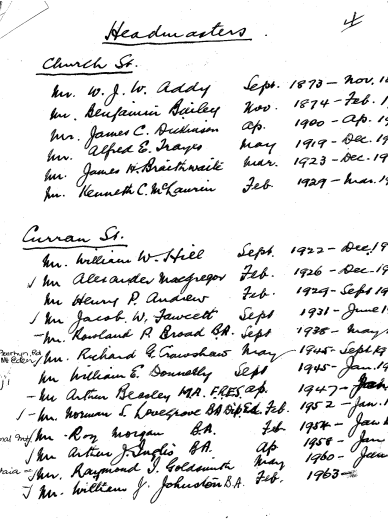 Headmasters.
4
Church St.
Mr. W. J. W. Addy Sept. 1873 - Nov. 1
Mr. Benjamin Bailey Nov. 1874 - Feb. 1
Mr. James C. Dickinson Ap. 1900 - Ap. 19
Mr. Alfred E. Trayes May 1919 - Dec. 19
Mr. James H. Braithwaite Mar. 1923 - Dec. 19
Mr. Kenneth C. McLaurin Feb. 1929 - Mar. 19
Curran St.
Mr. William W. Hill Sept. 1922 - Dec. 19
√ Mr. Alexander Macgregor Feb. 1926 - Dec. 19
Mr Henry P. Andrew Feb. 1929 - Sept 19
√ Mr. Jacob. W. Fawcett Sept 1931 - June 1
- Mr. Rowland P. Broad B.A. Sept 1938 - May
Rd √ Mr. Richard G. Crawshaw May 1945 - Sept 19
Mr. William E. Donnelly Sept 1945 - Jan. 19
Mr Arthur Beasley M.A. F.R.E.S. Ap. 1947 -
√ - Mr. Norman S. Lovegrove BA Dip. Ed. Feb. 1952 - Jan. 1
√ Mr. Roy Morgan B.A. Feb 1954 - Jan
√ Mr. Arthur J. Inglis BA. Ap 1958 - Jan
√ Mr. Raymond I. Goldsmith May 1960 - Jan
√ Mr. William J. Johnston B.A. Feb. 1963 -